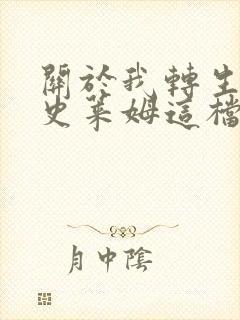 關於我轉生
史萊姆這檔
月中陰